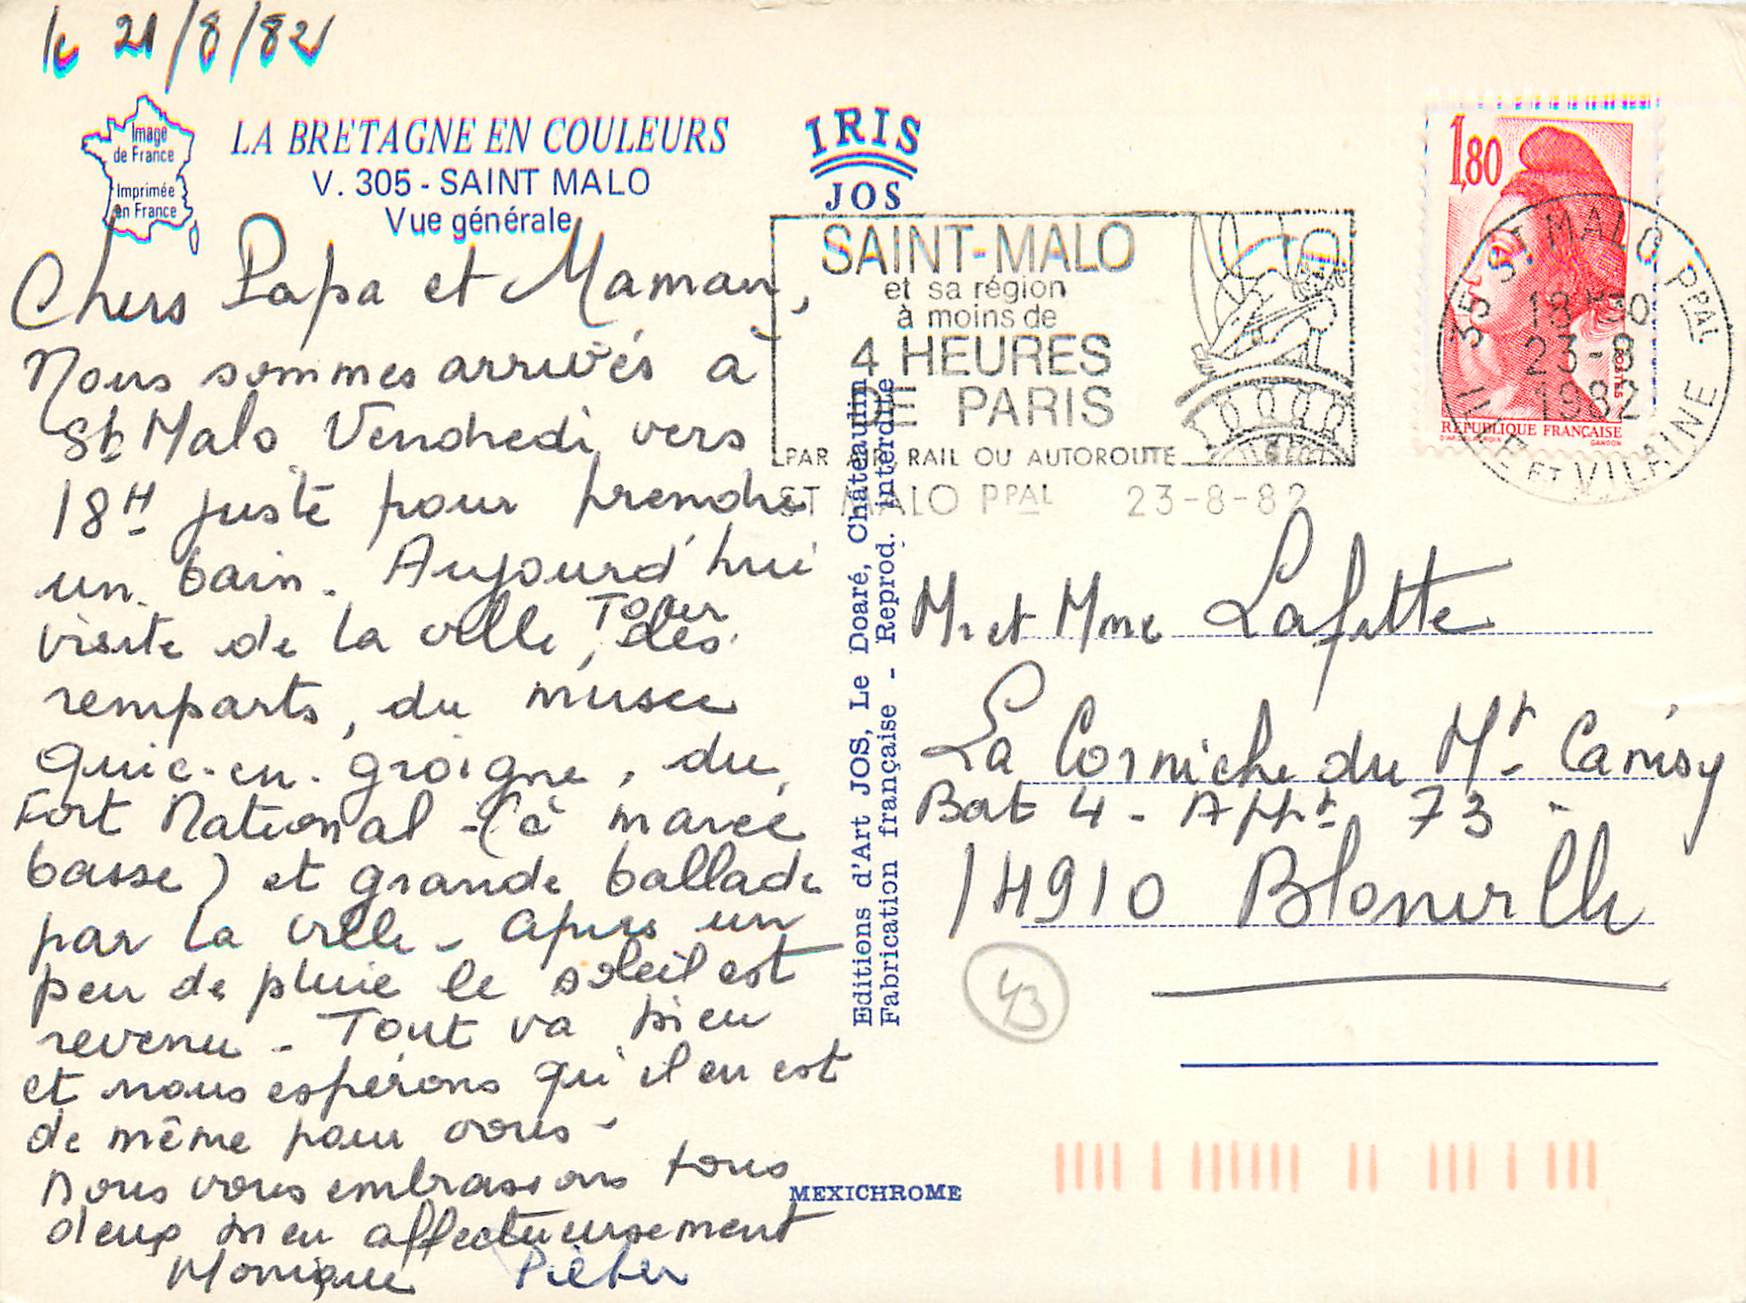 le 21/8/82
Image
de France
Imprimée
en France
LA BRETAGNE EN COULEURS
V. 305 - SAINT MALO
Vue générale
IRIS
JOS
Chers Papa et Maman,
Nous sommes arrivés à
St Malo Vendredi vers
18H juste pour prendre
un bain. Aujourd'hui
visite de la ville, Tour des
remparts, du musée
Quic-en-groigne, du
Fort National - (à marée
basse) et grande ballade
par la ville - Après un
peu de pluie le soleil est
revenu - Tout va bien
et nous espérons qu'il en est
de même pour vous -
Nous vous embrassons tous
deux bien affectueusement
Monique Pieter
Editions d'Art JOS, Le Doaré, Châteaulin
Fabrication française - Reprod. interdite
MEXICHROME
SAINT-MALO
et sa région
à moins de
4 HEURES
DE PARIS
PAR AIR, RAIL OU AUTOROUTE
ST MALO PPAL 23-8-82
1,80
POSTES
REPUBLIQUE FRANÇAISE
GANDON
35 ST MALO PPAL
18H30
23-8
1982
ILLE ET VILAINE
Mr et Mme Lafitte
La Corniche du Mt Canisy
Bat 4 - Appt 73 -
14910 Blonville
43